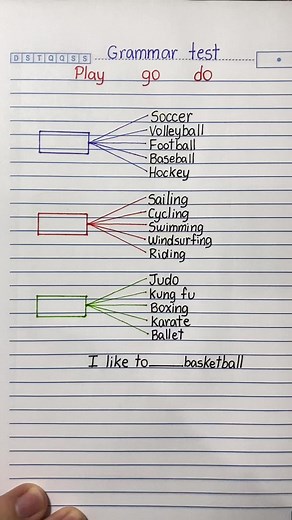 D S T Q Q S S
Grammar test
Play go do
Soccer
Volleyball
Football
Baseball
Hockey
Sailing
Cycling
Swimming
Windsurfing
Riding
Judo
Kung fu
Boxing
Karate
Ballet
I like to_____basketball